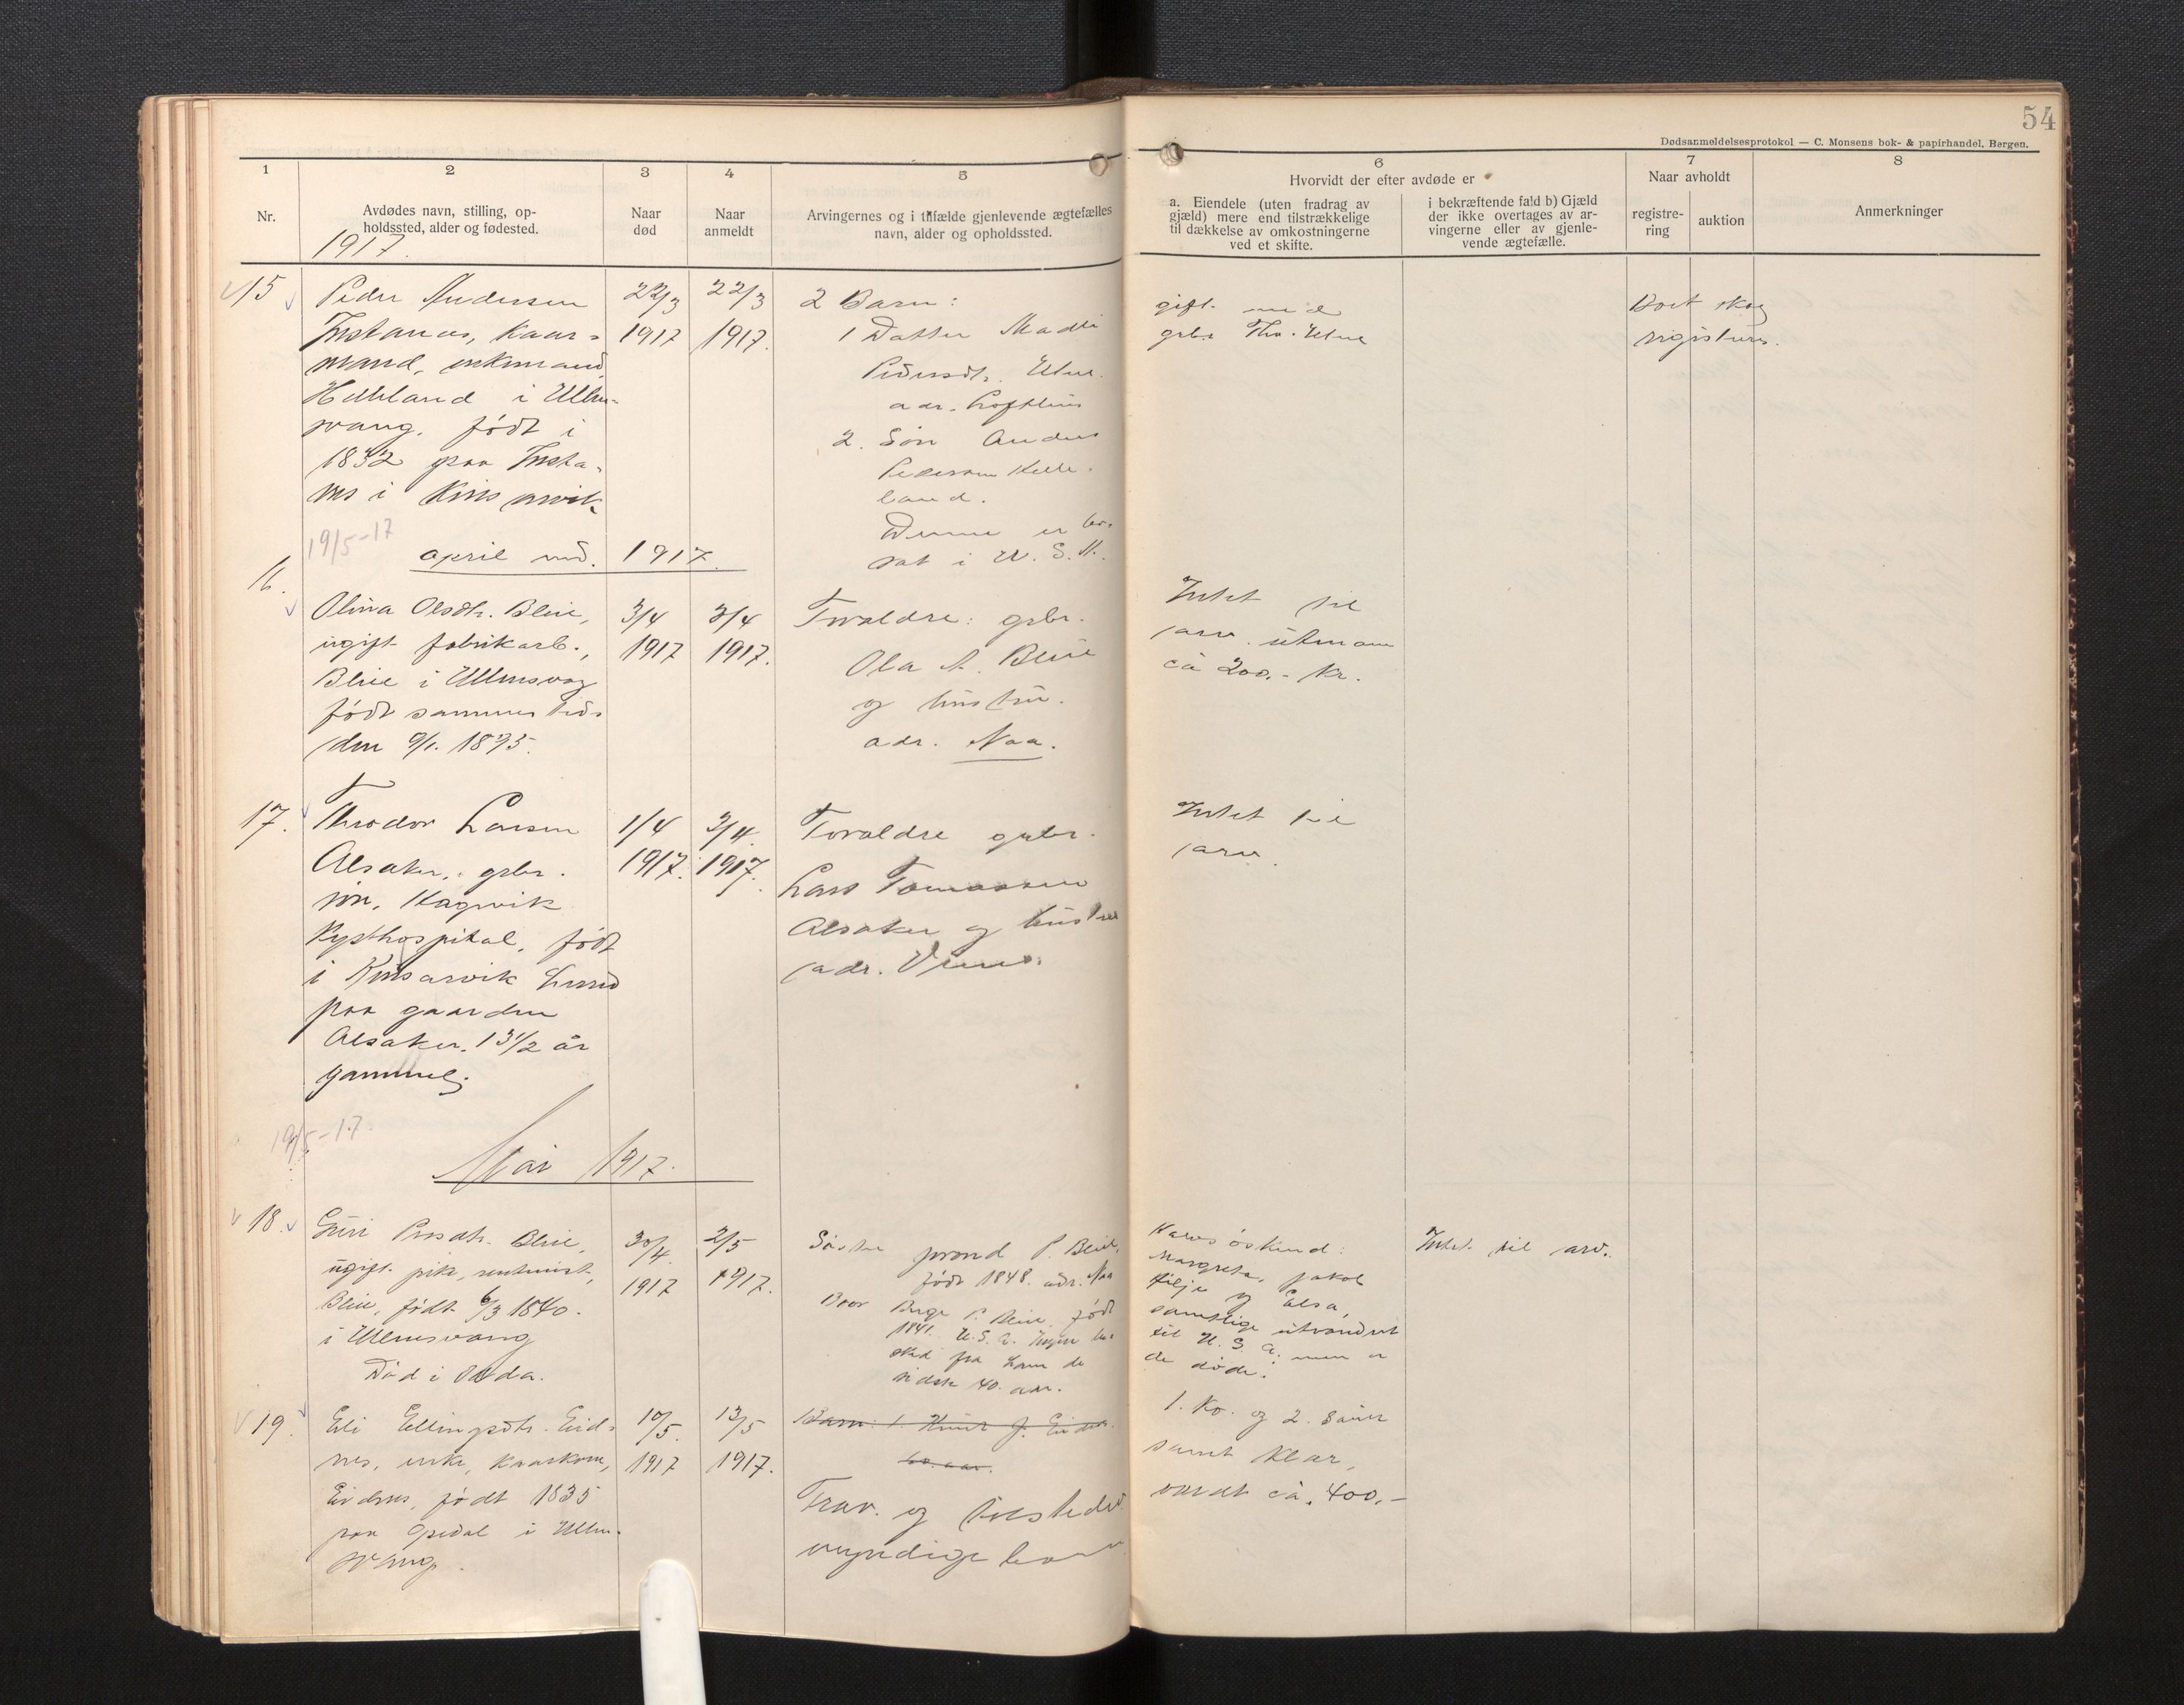 54
Dødsanmeldelsesprotokol — C. Monsens bok- & papirhandel, Bergen.
1
2
3
4
5
6
7
8
Nr.
Avdødes navn, stilling, op-
holdssted, alder og fødested.
Naar
død
Naar
anmeldt
Arvingernes og i tilfælde gjenlevende ægtefælles
navn, alder og opholdssted.
Hvorvidt der efter avdøde er
a. Eiendele (uten fradrag av
gjæld) mere end tilstrækkelige
til dækkelse av omkostningerne
ved et skifte.
i bekræftende fald b) Gjæld
der ikke overtages av ar-
vingerne eller av gjenle-
vende ægtefælle.
Naar avholdt
registre-
ring
auktion
Anmerkninger
1917.
15
Peder Andersen
Instanes, kaar-
mand, enkemand,
Helleland i Ullen-
svang, født i
1832 paa Insta-
nes i Kinsarvik.
22/3
1917
22/3
1917.
2 Barn:
1 Datter Madli
Pedersdtr. Utne.
adr. Lofthus
2. Søn Anders
Pederson Helle-
land.
Denne er bo-
sat i U.S.A.
gift med
grbr. Tho. Utne
Boet skog
registrers.
19/5-17
april md. 1917.
16.
Olina Olsdtr. Bleie,
ugift fabrikarb.,
Bleie i Ullensvag
født sammesteds
den 9/1. 1895.
3/4
1917
3/4
1917.
Foraldre: grbr.
Ola A. Bleie
og hustru.
adr. Naa.
Intet til
arv. utenom
ca 200.- kr.
17.
Theodor Larsen
Alsaker, grbr.
søn, Hagevik
Kysthospital, født
i Kinsarvik herred
paa gaarden
Alsaker. 13 1/2 år
gammel.
1/4
1917.
3/4.
1917.
Foraldre grbr.
Lars Tomassen
Alsaker og hustru
adr.
Intet til
arv.
19/5-17.
Mai 1917.
18.
Guri Persdtr. Bleie,
ugift pike, rentenist,
Bleie, født 6/3 1840.
i Ullensvang
Død i Odda.
30/4
1917
2/5
1917.
Søster P. Bleie,
født 1848. adr. Naa
Bror Berge P. Bleie, født
1841. U.S.A. Ingen be-
sked fra ham de
sidste 40. aar.
Halvsøskend:
Margreta, Jakob
Silje og Elsa,
samtlige utvandret
til U.S.A. men er
de døde.
Intet til arv.
19.
Eli Ellingsdtr. Eid-
nes, enke, kaarkone,
Eidnes, født 1835
paa Opedal i Ullen-
svang.
10/5.
1917
13/5
1917.
Barn: 1. Knut J. Eidnes.
60. aar.
Frav. og tilsteder
myndige barn
1. Ko. og 2. Sauer
samt klær,
værdt ca. 400,-